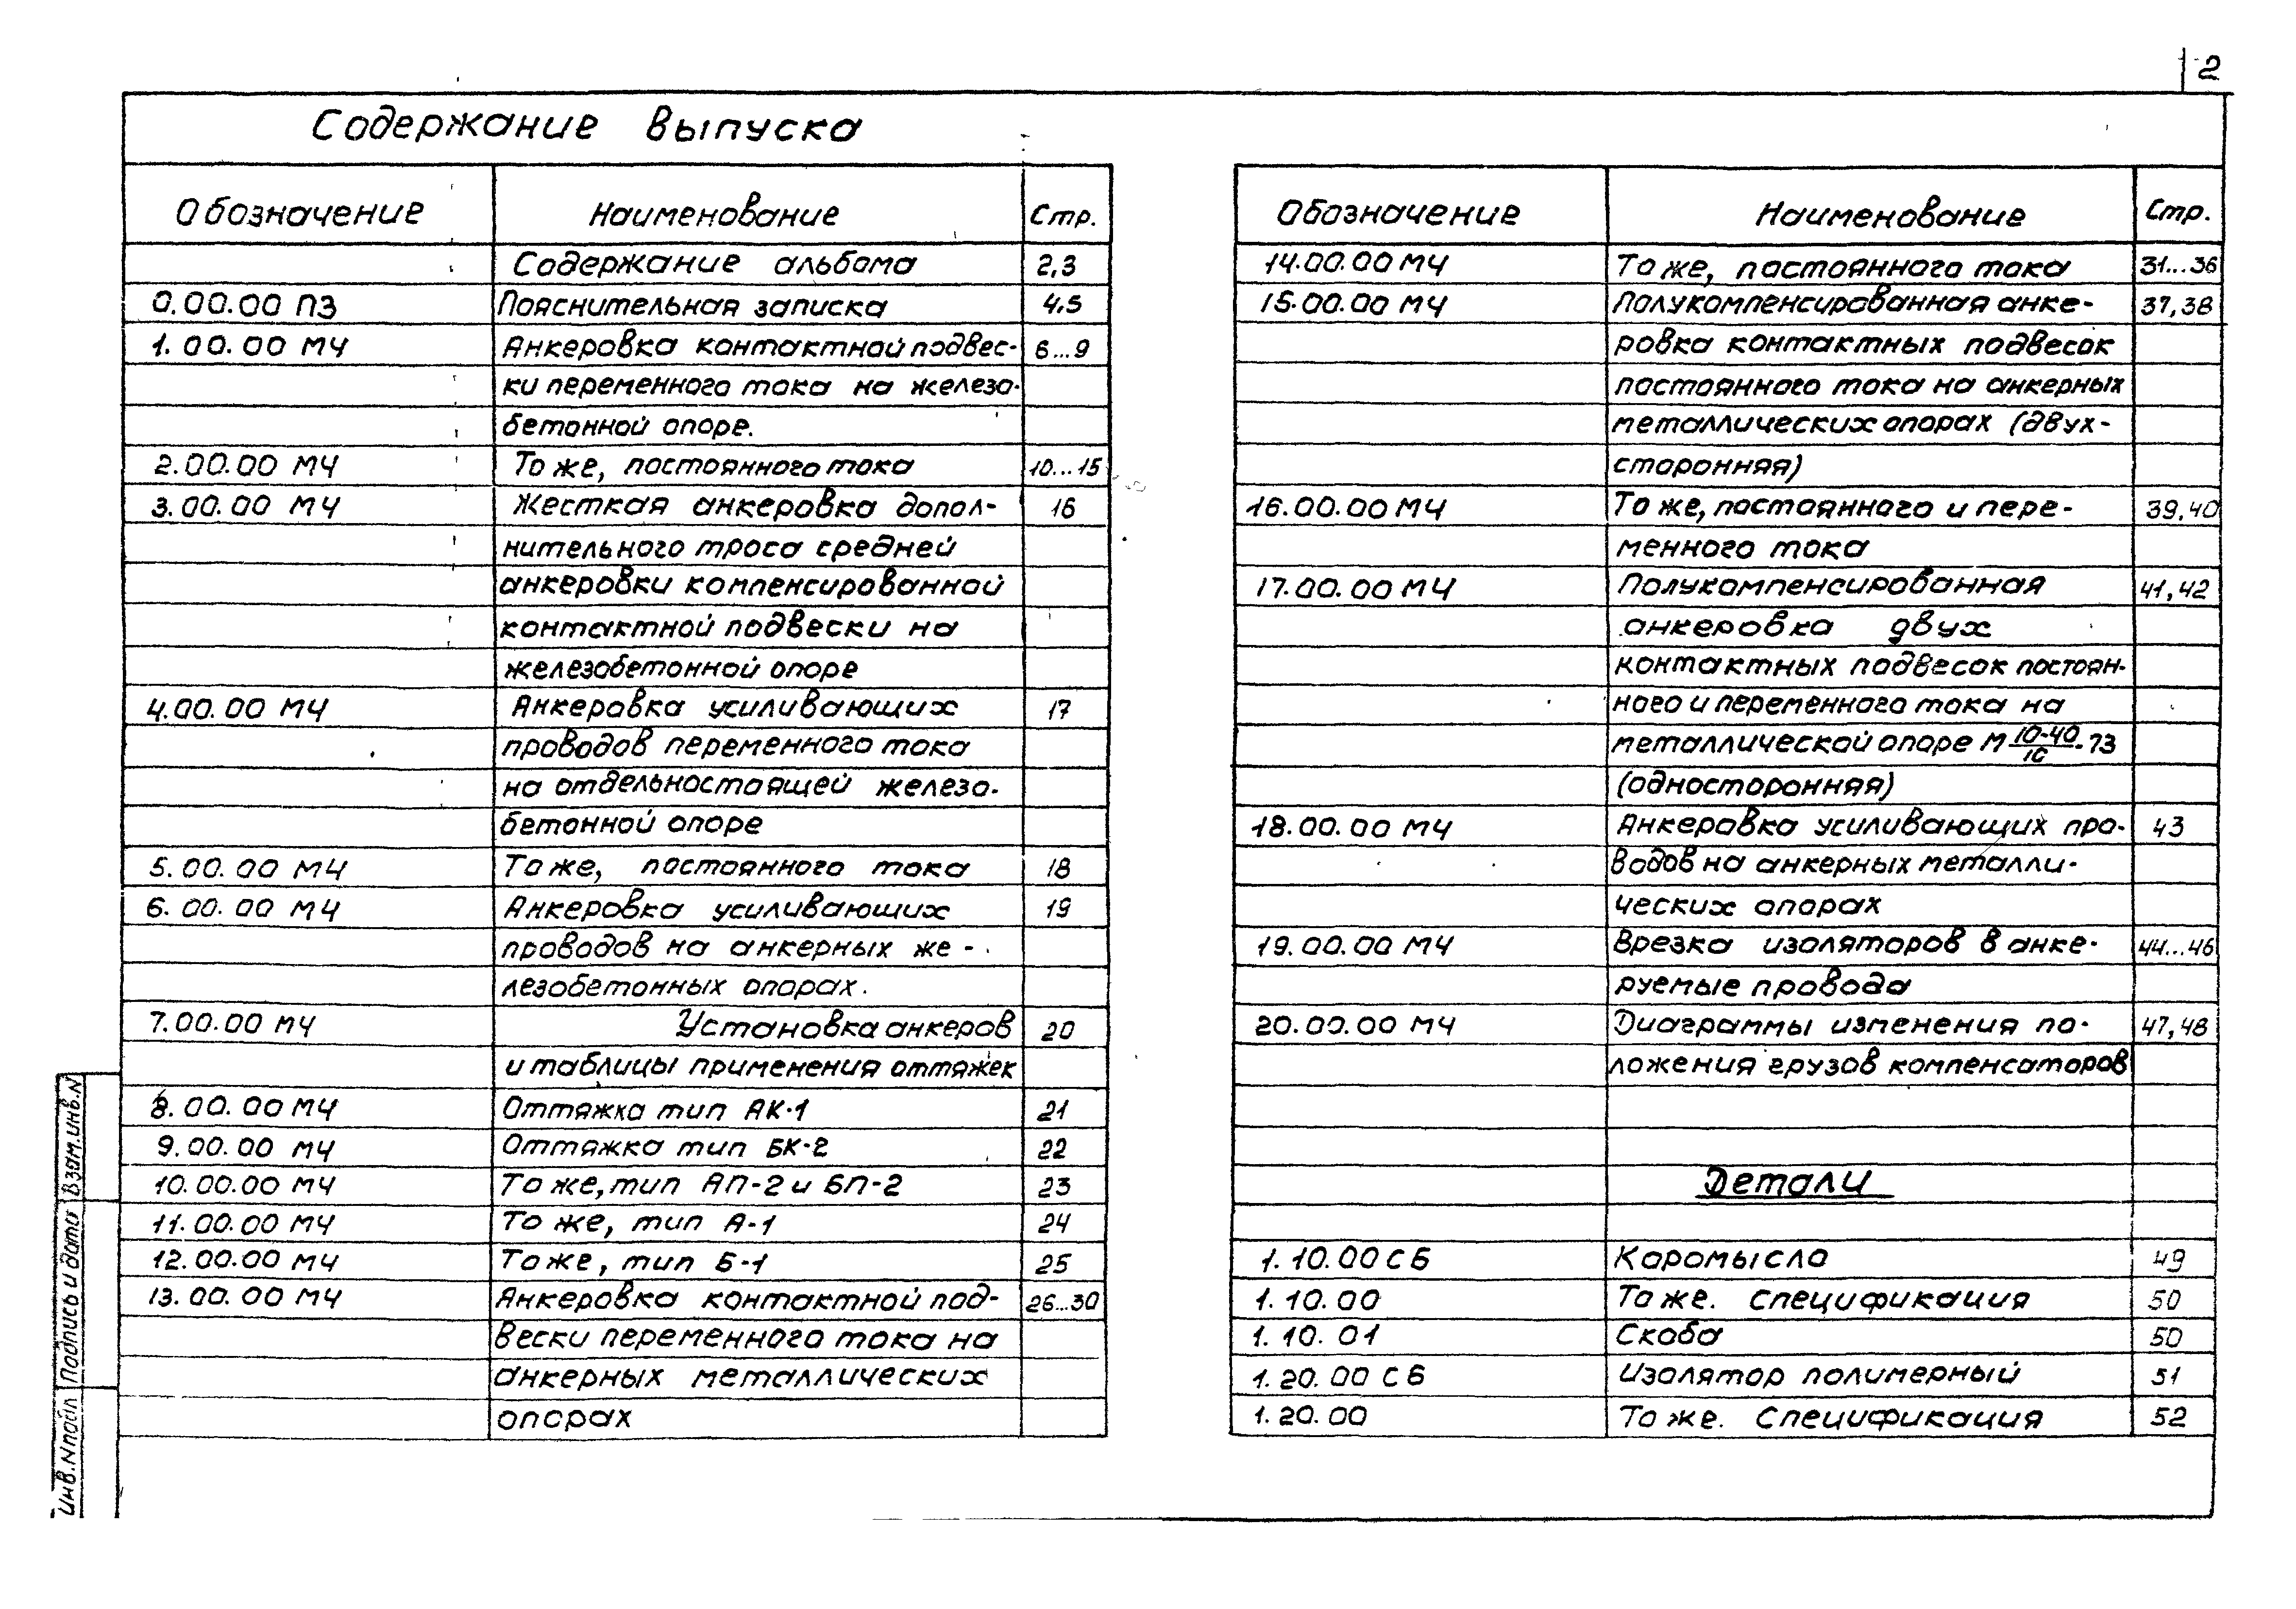 2
Содержание выпуска
Обозначение Наименование Стр.
Содержание альбома 2,3
0.00.00 ПЗ Пояснительная записка 4,5
1.00.00 МЧ Анкеровка контактной подвес- 6...9
ки переменного тока на железо-
бетонной опоре.
2.00.00 МЧ То же, постоянного тока 10...15
3.00.00 МЧ Жесткая анкеровка допол- 16
нительного троса средней
анкеровки компенсированной
контактной подвески на
железобетонной опоре
4.00.00 МЧ Анкеровка усиливающих 17
проводов переменного тока
на отдельностоящей железо-
бетонной опоре
5.00.00 МЧ То же, постоянного тока 18
6.00.00 МЧ Анкеровка усиливающих 19
проводов на анкерных же-
лезобетонных опорах.
7.00.00 МЧ Установка анкеров 20
и таблицы применения оттяжек
8.00.00 МЧ Оттяжка тип АК-1 21
9.00.00 МЧ Оттяжка тип БК-2 22
10.00.00 МЧ То же, тип АП-2 и БП-2 23
11.00.00 МЧ То же, тип А-1 24
12.00.00 МЧ То же, тип Б-1 25
13.00.00 МЧ Анкеровка контактной под- 26...30
вески переменного тока на
анкерных металлических
опорах
Обозначение Наименование Стр.
14.00.00 МЧ То же, постоянного тока 31...36
15.00.00 МЧ Полукомпенсированная анке- 37,38
ровка контактных подвесок
постоянного тока на анкерных
металлических опорах (двух-
сторонняя)
16.00.00 МЧ То же, постоянного и пере- 39,40
менного тока
17.00.00 МЧ Полукомпенсированная 41,42
анкеровка двух
контактных подвесок постоян-
ного и переменного тока на
металлической опоре М 10-40/10-73
(односторонняя)
18.00.00 МЧ Анкеровка усиливающих про- 43
водов на анкерных металли-
ческих опорах
19.00.00 МЧ Врезка изоляторов в анке- 44...46
руемые провода
20.00.00 МЧ Диаграммы изменения по- 47,48
ложения грузов компенсаторов
Детали
1.10.00 СБ Коромысло 49
1.10.00 То же. Спецификация 50
1.10.01 Скоба 50
1.20.00 СБ Изолятор полимерный 51
1.20.00 То же. Спецификация 52
Инв.N подл Подпись и дата Взам.инв.N